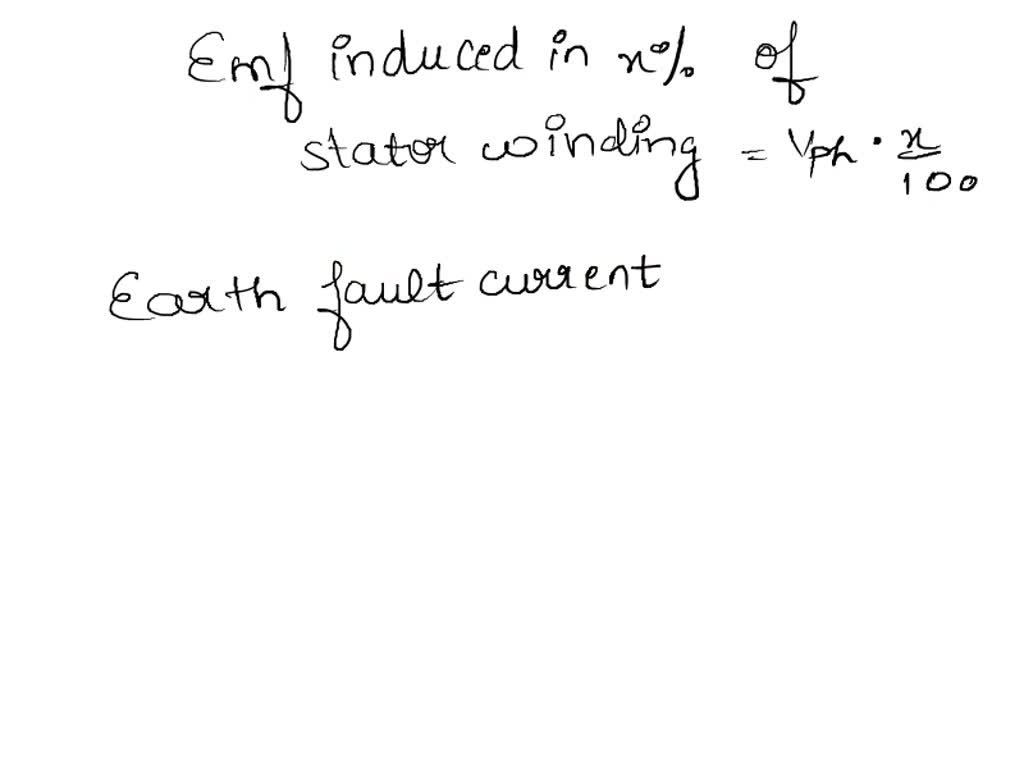 Emf induced in x% of
stator winding = Vph · x/100
Earth fault current